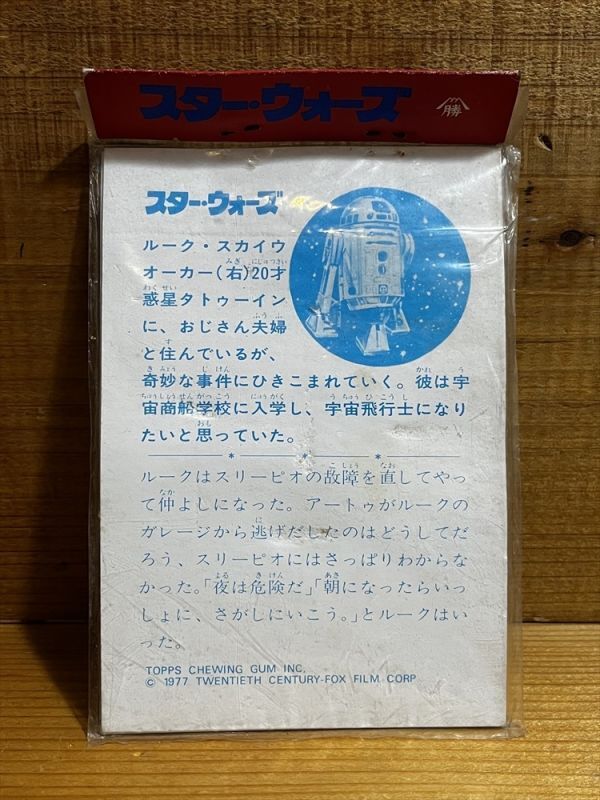 スター・ウォーズ
勝
スター・ウォーズ
ルーク・スカイウ
オーカー(右)20才
惑星タトゥーイン
に、おじさん夫婦
と住んでいるが、
奇妙な事件にひきこまれていく。彼は宇
宙商船学校に入学し、宇宙飛行士になり
たいと思っていた。
ルークはスリーピオの故障を直してやっ
て仲よしになった。アートゥがルークの
ガレージから逃げだしたのはどうしてだ
ろう、スリーピオにはさっぱりわからな
かった。「夜は危険だ」「朝になったらいっ
しょに、さがしにいこう。」とルークはい
った。
TOPPS CHEWING GUM INC.
© 1977 TWENTIETH CENTURY-FOX FILM CORP